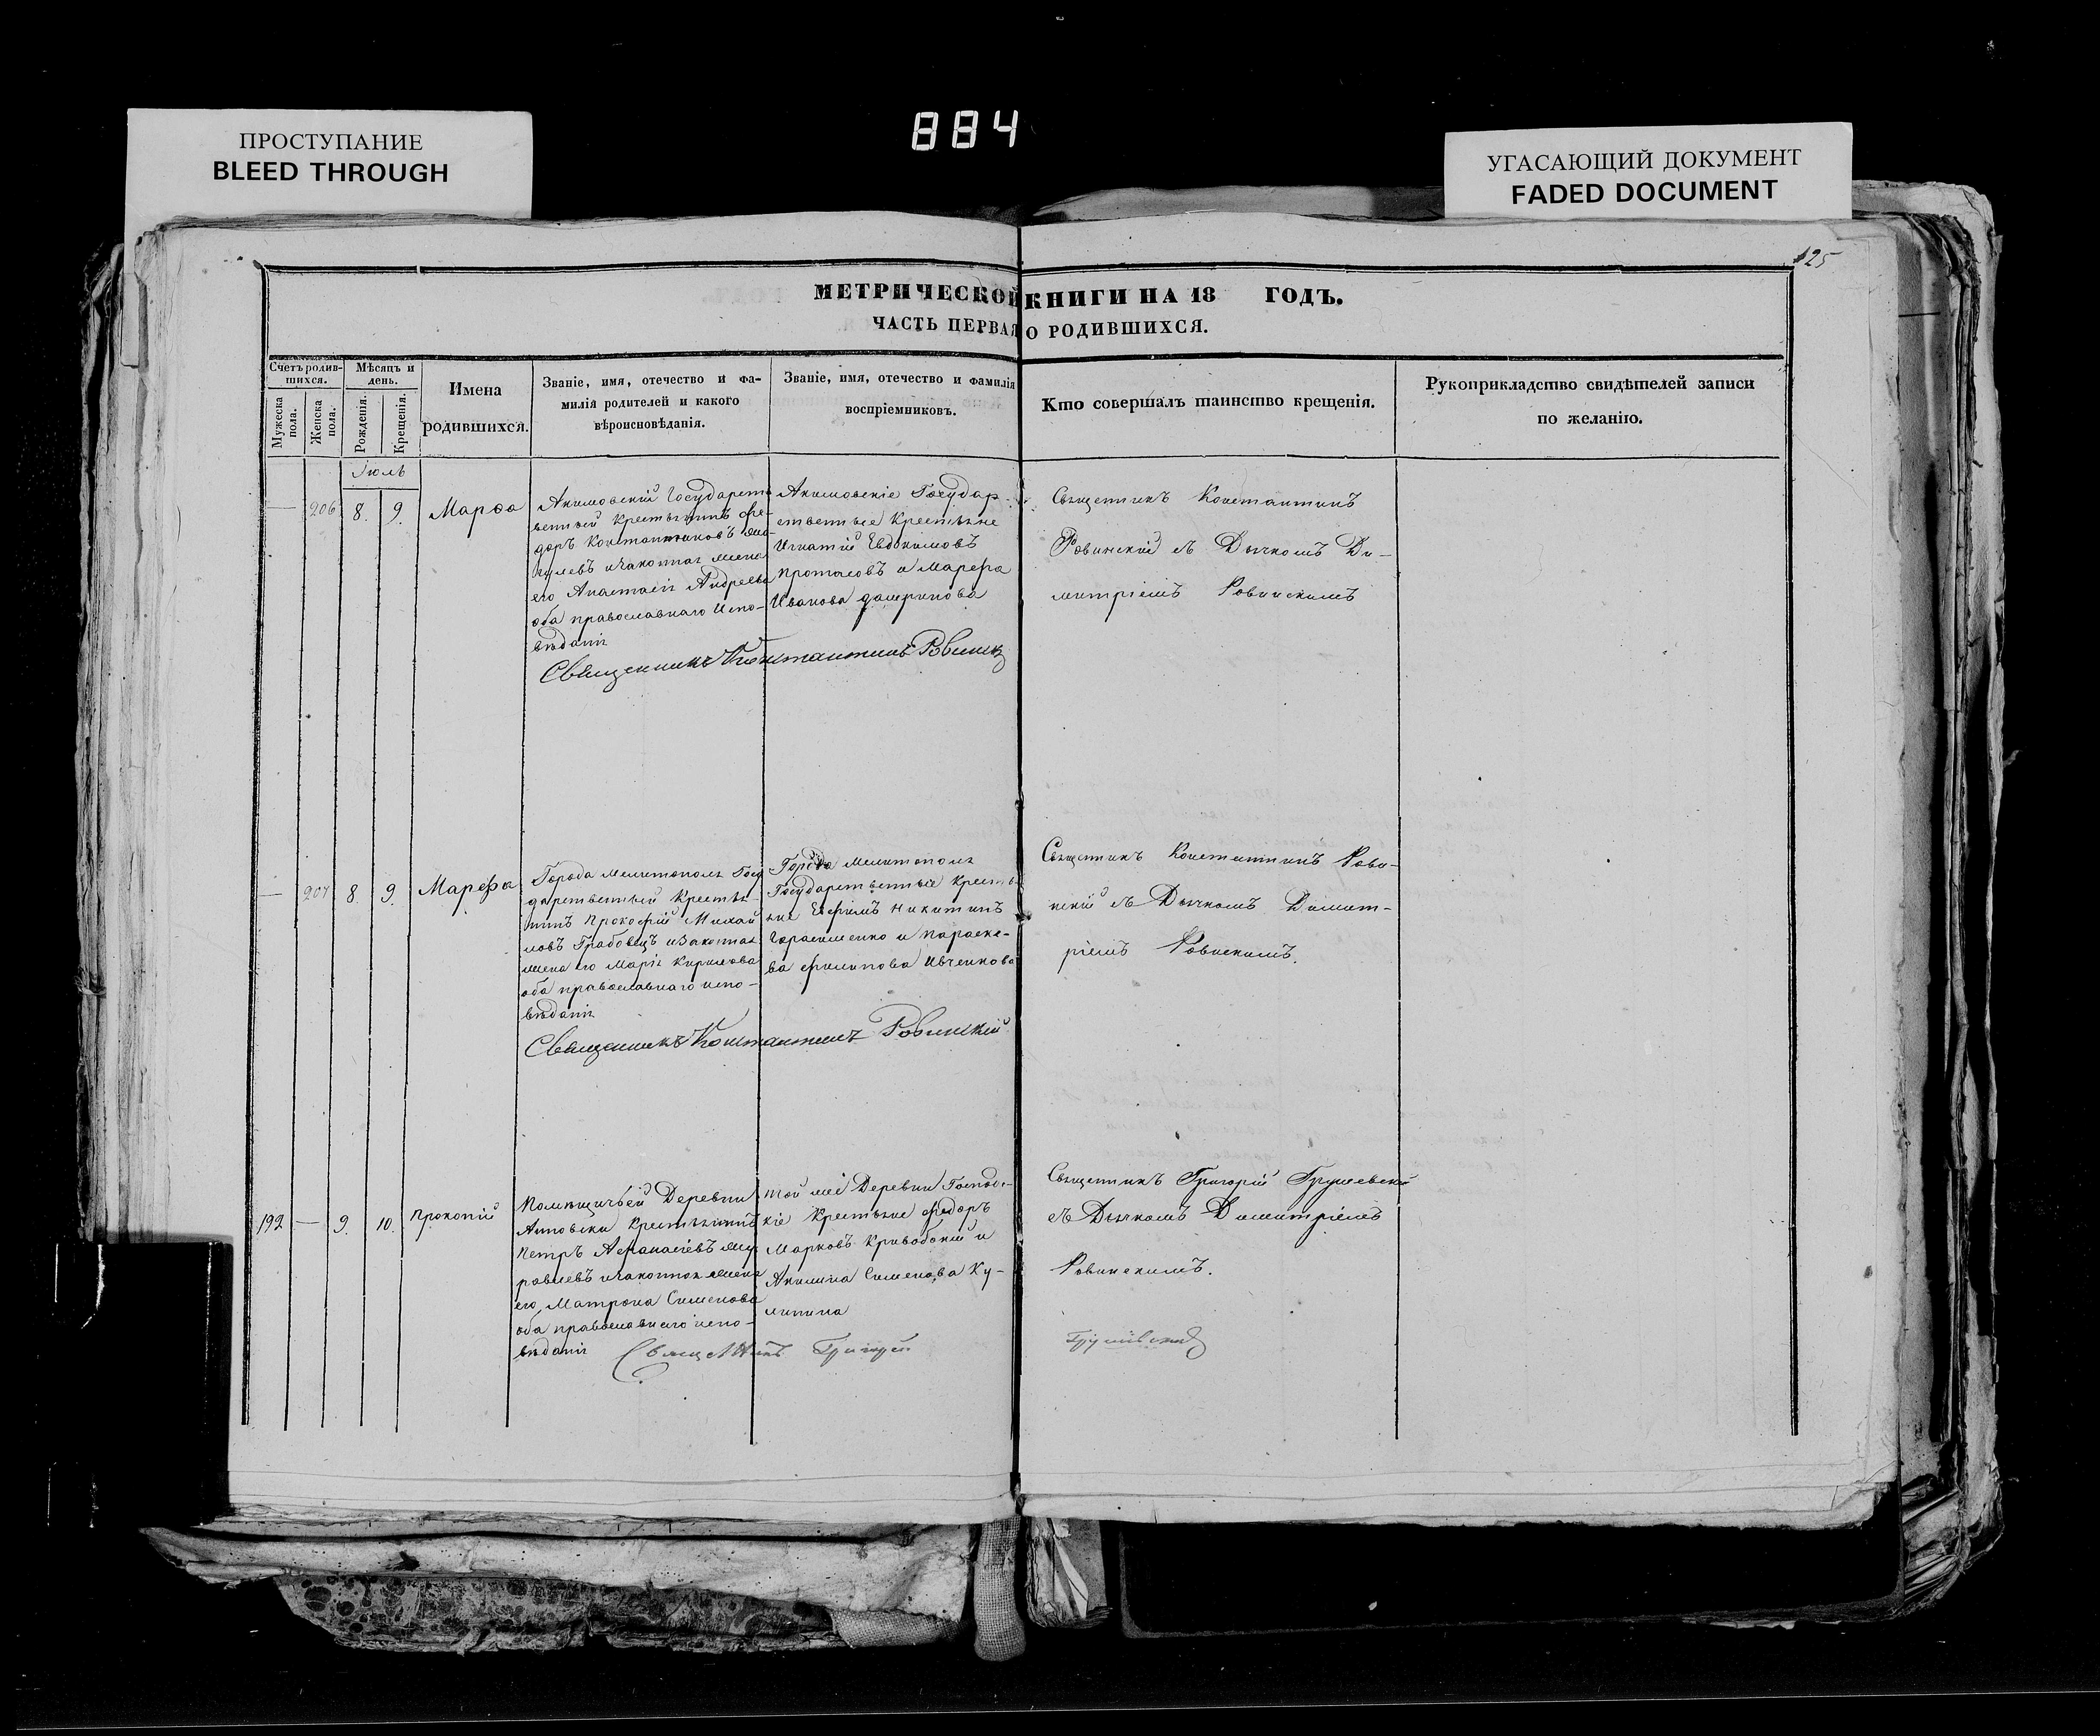 884
ПРОСТУПАНИЕ
BLEED THROUGH
УГАСАЮЩИЙ ДОКУМЕНТ
FADED DOCUMENT
125
МЕТРИЧЕСКОЙ КНИГИ НА 18 ГОДЪ.
ЧАСТЬ ПЕРВАЯ О РОДИВШИХСЯ.
Счетъ родив-
шихся.
Мужеска
пола.
Женска
пола.
Мѣсяцъ и
день.
Рожденія.
Крещенія.
Имена
родившихся.
Званіе, имя, отечество и фа-
милія родителей и какого
вѣроисновѣданія.
Званіе, имя, отечество и фамилія
воспріемниковъ.
Кто совершалъ таинство крещенія.
Рукоприкладство свидѣтелей записи
по желанію.
Іюль
— 206 8. 9.
Марѳа
Акимовскій Государст
венный Крестьянинъ Фе-
доръ Константиновъ
и законная жена
его Анастасія Андреева
оба православнаго испо-
вѣданія
Акимовскіе Государ-
ственные Крестьяне
Игнатій Евдокимовъ
Протасовъ и Марефа
Иванова
Священникъ Константинъ
Ровинскій съ Дьячкомъ Ди-
митріемъ Ровинскимъ
Священникъ Константинъ
— 207 8. 9.
Марефа
Города Мелитополя Госу
дарственный Крестья-
нинъ Прокофій Михай
ловъ Грабовецъ и законная
жена его Марія Кирилова
оба православнаго испо-
вѣданія
Города Мелитополя
Государственные Крестья-
не Ефимъ Никитинъ
Герасименко и Параске-
ва Филипова Ивченкова
Священникъ Константинъ Рови-
нскій съ Дьячкомъ Димит-
ріемъ Ровинскимъ.
Священникъ Константинъ Ровинскій
192 — 9. 10.
Прокопій
Помѣщичьей Деревни
Антовки Крестьянинъ
Петръ Афанасіевъ Жу
равлевъ и законная жена
его Матрона Сименова
оба православнаго испо-
вѣданія
той же Деревни Господс-
кіе Крестьяне Федоръ
Марковъ Кривобокій и
Акилина Сименова Ку-
линина
Священникъ Григорій Грушевскій
съ Дьячкомъ Димитріемъ
Ровинскимъ.
Священникъ Григорій Грушевскій